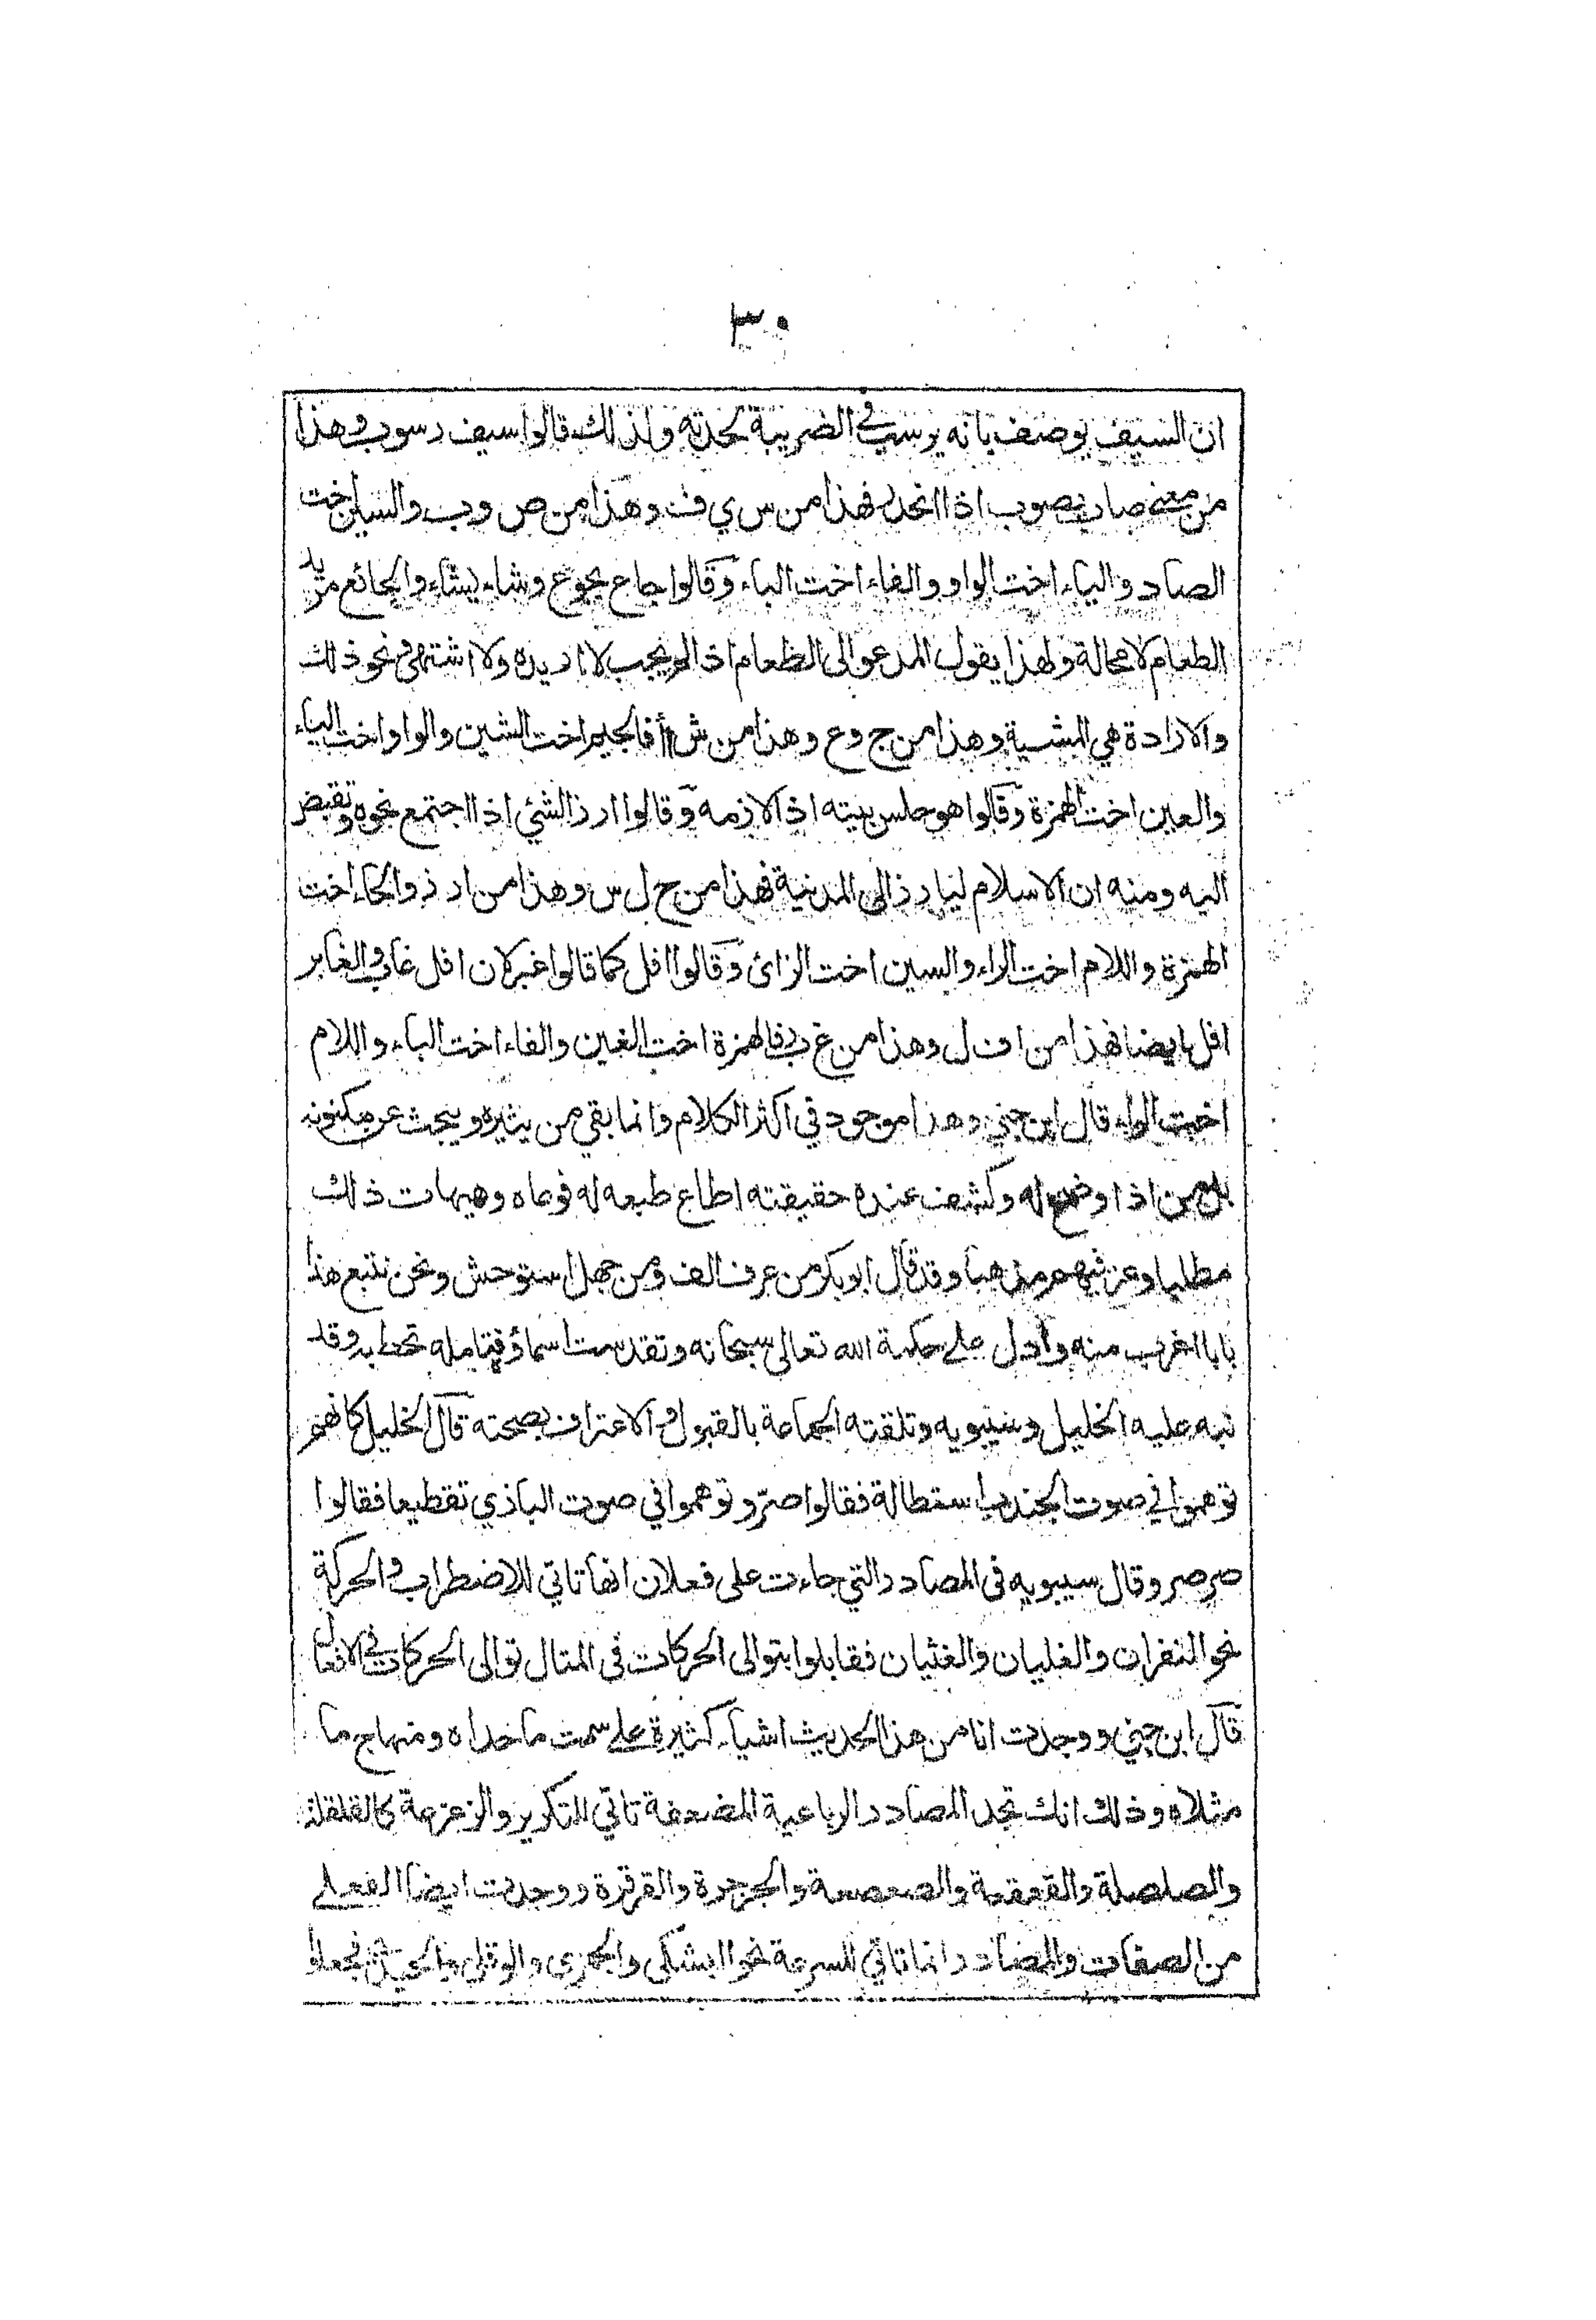 ٣٠
ان السيف يوصف بانه يرسب في الضريبة لحدته ولذلك قالوا سيف رسوب وهذا
من معنى صاب يصوب اذا انحدر فهذا من س ي ف وهذا من ص وب والسين اخت
الصاد والياء اخت الواو والفاء اخت الباء وقالوا جاع يجوع وشاء يشاء والجائع مريد
الطعام لا محالة ولهذا يقول المدعو الى الطعام اذا لم يجب لا اريده ولا اشتهي ونحو ذلك
والارادة هي المشية وهذا من ج وع وهذا من ش أ فالجيم اخت الشين والواو اخت الياء
والعين اخت الهمزة وقالوا هو حلس بيته اذا لازمه وقالوا ارز الشئ اذا اجتمع نحوه وتقبض
اليه ومنه ان الاسلام ليارز الى المدينة فهذا من ح ل س وهذا من ا ر ز والحاء اخت
الهمزة واللام اخت الراء والسين اخت الزائ وقالوا افل كما قالوا غبر لان افل غاب والغابر
افل ايضا فهذا من ا ف ل وهذا من غ ب ر فالهمزة اخت الغين والفاء اخت الباء واللام
اخت الراء قال ابن جني وهذا موجود في اكثر الكلام وانما بقي من يثيره ويبحث عن مكنونه
بل من اذا اوضح له وكشف عنده حقيقته اطاع طبعه له فوعاه وهيهات ذلك
مطلبا وعز فيهم مذهبا وقد قال ابو بكر من عرف الف ومن جهل استوحش ونحن نتبع هذا
بابا اغرب منه وادل على حكمة الله تعالى سبحانه وتقدست اسماؤه فتامله تحظ به وقد
نبه عليه الخليل وسيبويه وتلقته الجماعة بالقبول و الاعتراف بصحته قال الخليل كانهم
توهموا في صوت الجندب استطالة فقالوا صرّ وتوهموا في صوت البازي تقطيعا فقالوا
صرصر وقال سيبويه في المصادر التي جاءت على فعلان انها تاتي للاضطراب والحركة
نحو النفران والغليان والغثيان فقابلوا بتوالى الحركات في المثال توالى الحركات في الافعال
قال ابن جني ووجدت انا من هذا الحديث اشياء كثيرة على سمت ما حداه ومنهاج ما
مثلاه وذلك انك تجد المصادر الرباعية المضعفة تاتي للتكرير والزعزعة كالقلقلة
والصلصلة والقعقعة والصعصعة والجرجرة والقرقرة ووجدت ايضا الفعلى
من الصفات والمصادر انما تاتي للسرعة نحو البشكى والجمزى والولقى فجعلوا